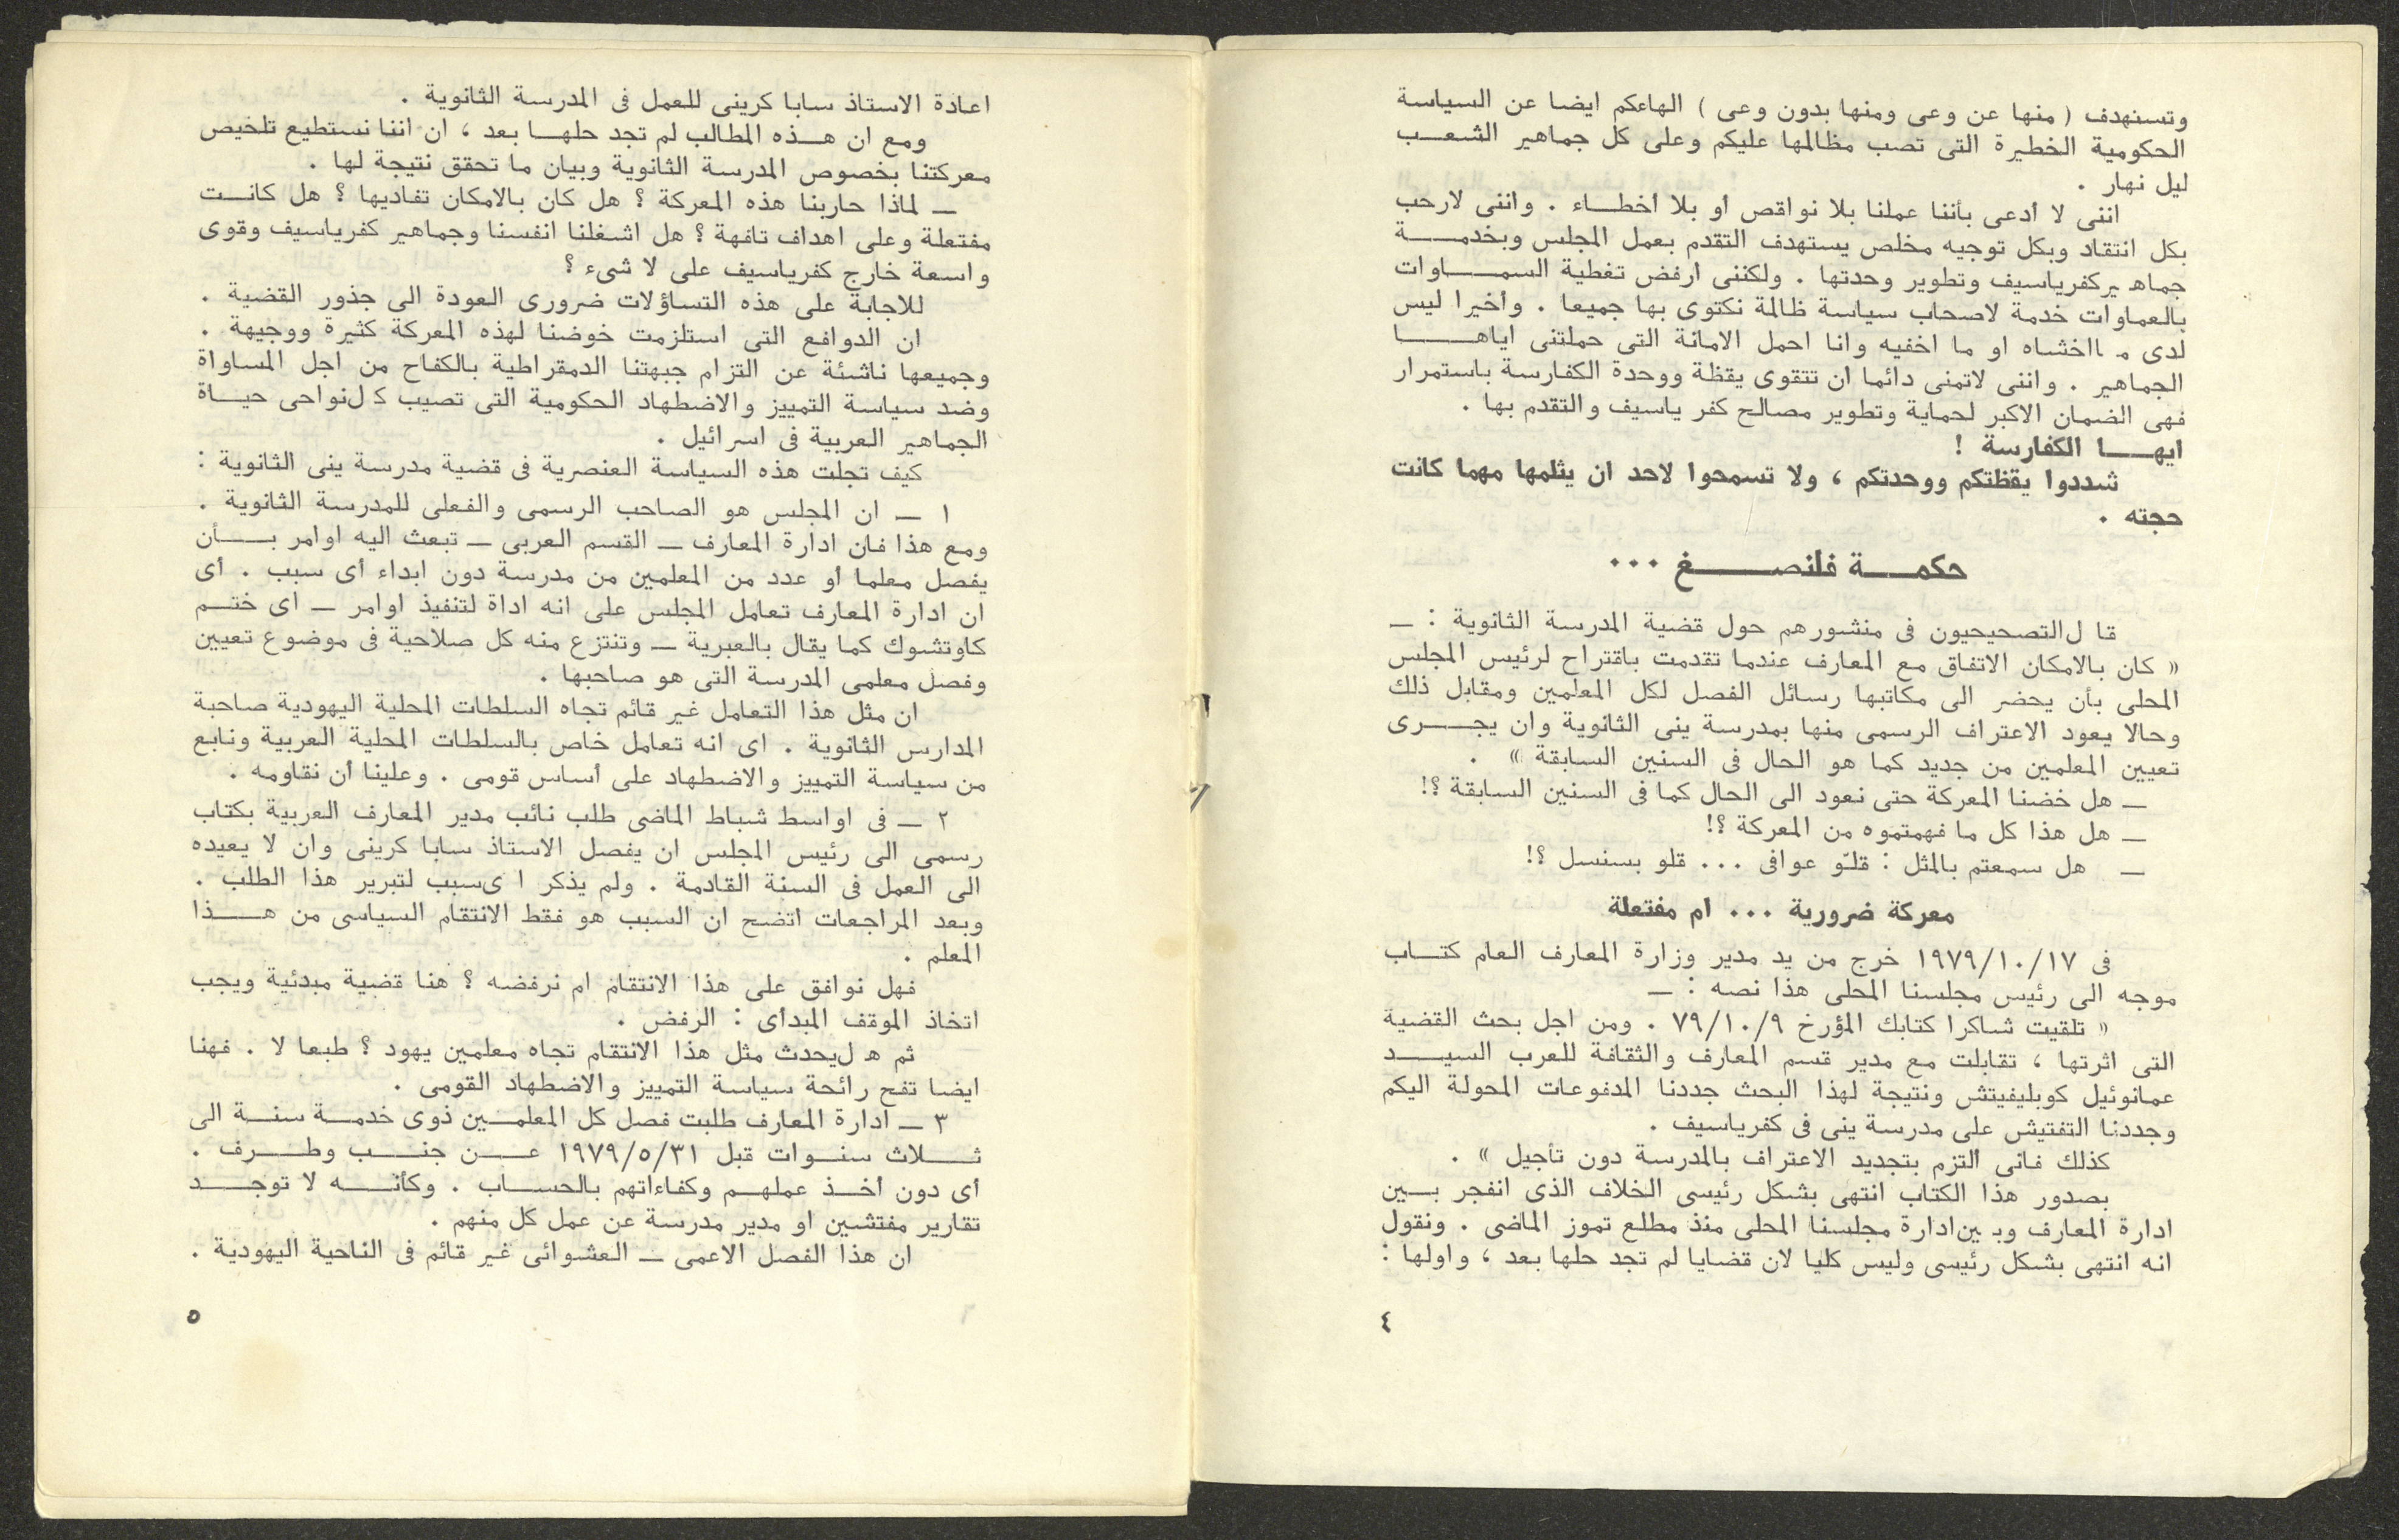 وتستهدف ( منها عن وعى ومنها بدون وعى ) الهاءكم ايضا عن السياسة
الحكومية الخطيرة التى تصب مظالمها عليكم وعلى كل جماهير الشعب
ليل نهار .
اننى لا أدعى بأننا عملنا بلا نواقص أو بلا أخطاء . واننى لارحب
بكل انتقاد وبكل توجيه مخلص يستهدف التقدم بعمل المجلس وبخدمة
جماه يركفرياسيف وتطوير وحدتها . ولكننى ارفض تغطية السماوات
بالعماوات خدمة لاصحاب سياسة ظالمة نكتوى بها جميعا . وأخيرا ليس
لدى م ااخشاه او ما اخفيه وانا احمل الامانة التى حملتنى اياها
الجماهير . واننى لاتمنى دائما ان تتقوى يقظة ووحدة الكفارسة باستمرار
فهى الضمان الاكبر لحماية وتطوير مصالح كفر ياسيف والتقدم بها .
ايها الكفارسة !
شددوا يقظتكم ووحدتكم ، ولا تسمحوا لاحد ان يثلمها مهما كانت
حجته .
حكمة فلنصغ ...
قا ل التصحيحيون فى منشورهم حول قضية المدرسة الثانوية : ـ
« كان بالامكان الاتفاق مع المعارف عندما تقدمت باقتراح لرئيس المجلس
المحلى بأن يحضر الى مكاتبها رسائل الفصل لكل المعلمين ومقابل ذلك
وحالا يعود الاعتراف الرسمى منها بمدرسة ينى الثانوية وان يجرى
تعيين المعلمين من جديد كما هو الحال فى السنين السابقة » .
ـ هل خضنا المعركة حتى نعود الى الحال كما فى السنين السابقة ؟!
ـ هل هذا كل ما فهمتموه من المعركة ؟!
ـ هل سمعتم بالمثل : قلّو عوافى ... قلو بسنسل ؟!
معركة ضرورية ... ام مفتعلة
فى ١٩٧٩/١٠/١٧ خرج من يد مدير وزارة المعارف العام كتاب
موجه الى رئيس مجلسنا المحلى هذا نصه : ـ
« تلقيت شاكرا كتابك المؤرخ ٧٩/١٠/٩ . ومن اجل بحث القضية
التى اثرتها ، تقابلت مع مدير قسم المعارف والثقافة للعرب السيد
عمانوئيل كوبليفيتش ونتيجة لهذا البحث جددنا المدفوعات المحولة اليكم
وجددنا التفتيش على مدرسة ينى فى كفرياسيف .
كذلك فانى ألتزم بتجديد الاعتراف بالمدرسة دون تأجيل » .
بصدور هذا الكتاب انتهى بشكل رئيسى الخلاف الذى انفجر بين
ادارة المعارف وب ين ادارة مجلسنا المحلى منذ مطلع تموز الماضى . ونقول
انه انتهى بشكل رئيسى وليس كليا لان قضايا لم تجد حلها بعد ، واولها :
٤
اعادة الاستاذ سابا كرينى للعمل فى المدرسة الثانوية .
ومع ان هذه المطالب لم تجد حلها بعد ، ان اننا نستطيع تلخيص
معركتنا بخصوص المدرسة الثانوية وبيان ما تحقق نتيجة لها .
ـ لماذا حاربنا هذه المعركة ؟ هل كان بالامكان تفاديها ؟ هل كانت
مفتعلة وعلى اهداف تافهة ؟ هل اشغلنا انفسنا وجماهير كفرياسيف وقوى
واسعة خارج كفرياسيف على لا شىء ؟
للاجابة على هذه التساؤلات ضرورى العودة الى جذور القضية .
ان الدوافع التى استلزمت خوضنا لهذه المعركة كثيرة ووجيهة .
وجميعها ناشئة عن التزام جبهتنا الدمقراطية بالكفاح من اجل المساواة
وضد سياسة التمييز والاضطهاد الحكومية التى تصيب ك لنواحى حياة
الجماهير العربية فى اسرائيل .
كيف تجلت هذه السياسة العنصرية فى قضية مدرسة ينى الثانوية :
١ ـ ان المجلس هو الصاحب الرسمى والفعلى للمدرسة الثانوية .
ومع هذا فان ادارة المعارف ـ القسم العربى ـ تبعث اليه اوامر بأن
يفصل معلما أو عدد من المعلمين من مدرسة دون ابداء أى سبب . أى
ان ادارة المعارف تعامل المجلس على انه اداة لتنفيذ اوامر ـ اى ختم
كاوتشوك كما يقال بالعبرية ـ وتنتزع منه كل صلاحية فى موضوع تعيين
وفصل معلمى المدرسة التى هو صاحبها .
ان مثل هذا التعامل غير قائم تجاه السلطات المحلية اليهودية صاحبة
المدارس الثانوية . اى انه تعامل خاص بالسلطات المحلية العربية ونابع
من سياسة التمييز والاضطهاد على أساس قومى . وعلينا أن نقاومه .
٢ ـ فى اواسط شباط الماضى طلب نائب مدير المعارف العربية بكتاب
رسمى الى رئيس المجلس ان يفصل الاستاذ سابا كرينى وان لا يعيده
الى العمل فى السنة القادمة . ولم يذكر ا ىسبب لتبرير هذا الطلب .
وبعد المراجعات اتضح ان السبب هو فقط الانتقام السياسى من هذا
المعلم .
فهل نوافق على هذا الانتقام ام نرفضه ؟ هنا قضية مبدئية ويجب
اتخاذ الموقف المبدأى : الرفض .
ثم ه ليحدث مثل هذا الانتقام تجاه معلمين يهود ؟ طبعا لا . فهنا
ايضا تفح رائحة سياسة التمييز والاضطهاد القومى .
٣ ـ ادارة المعارف طلبت فصل كل المعلمين ذوى خدمة سنة الى
ثلاث سنوات قبل ١٩٧٩/٥/٣١ عن جنب وطرف .
أى دون أخذ عملهم وكفاءاتهم بالحساب . وكأنه لا توجد
تقارير مفتشين او مدير مدرسة عن عمل كل منهم .
ان هذا الفصل الاعمى ـ العشوائى غير قائم فى الناحية اليهودية .
٥